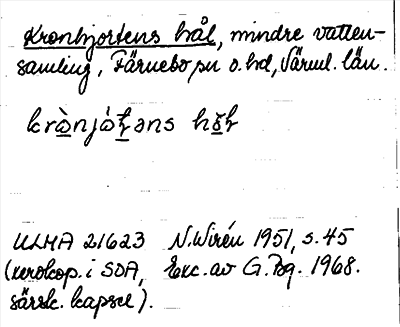 Kronhjortens hål, mindre vatten-
samling, Färnebo sn o. hd, Värml. län.
krò̲njó̀ʈəns hɔ̲̄ɽ
ULMA 21623 N. Wirén 1951, s. 45
(xerokop. i SOA, Exc. av G. Bg. 1968.
särsk. kapsel).